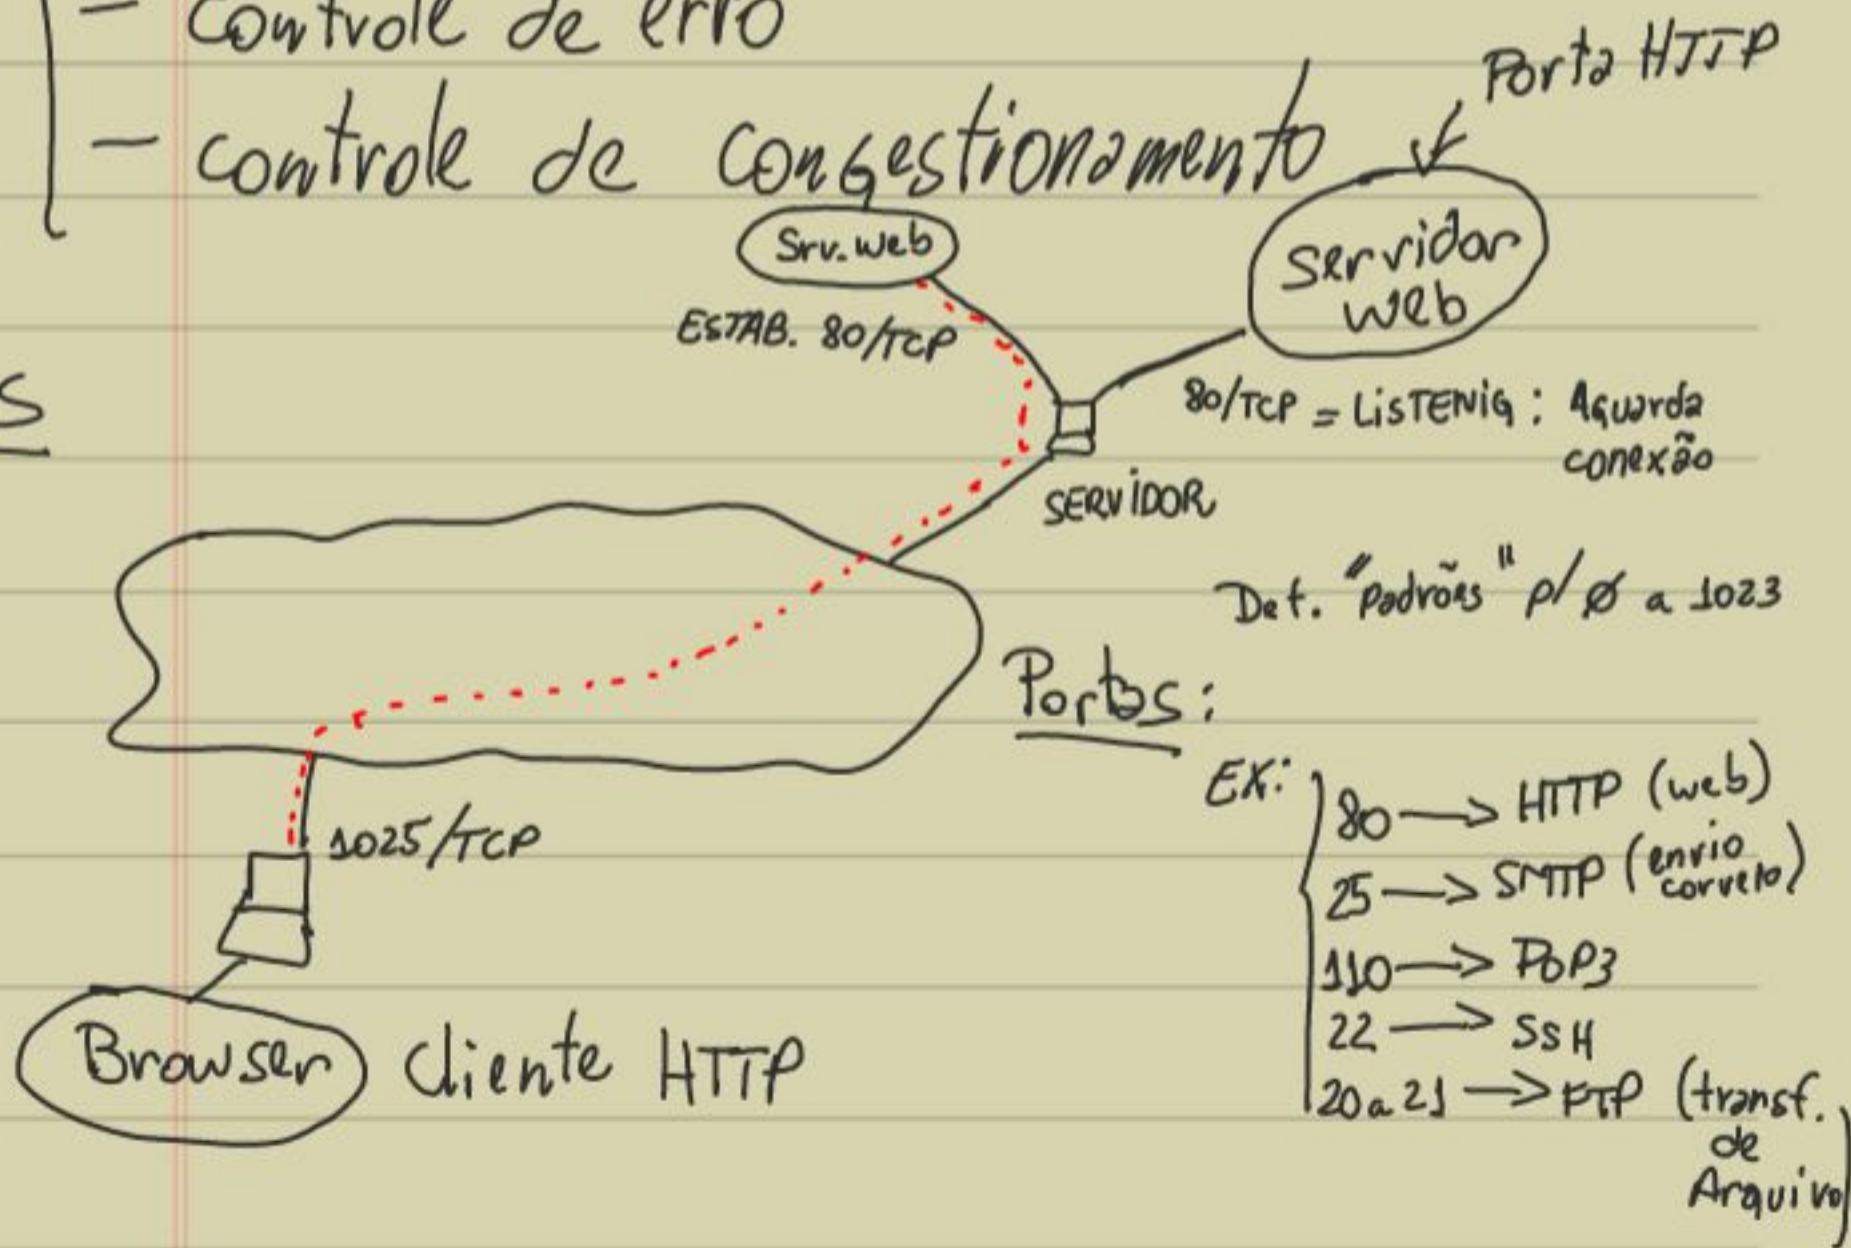 - controle de erro
- controle de congestionamento
Porta HTTP
Srv. web
servidor
web
ESTAB. 80/TCP
80/TCP = LISTENIG : Aguarda
conexão
SERVIDOR
S
Det. "padrões" p/ Ø a 1023
Portas:
EX:
80 → HTTP (web)
25 → SMTP (envio
correio)
110 → POP3
22 → SSH
20 a 21 → FTP (transf.
de
Arquivo)
1025/TCP
Browser
Cliente HTTP